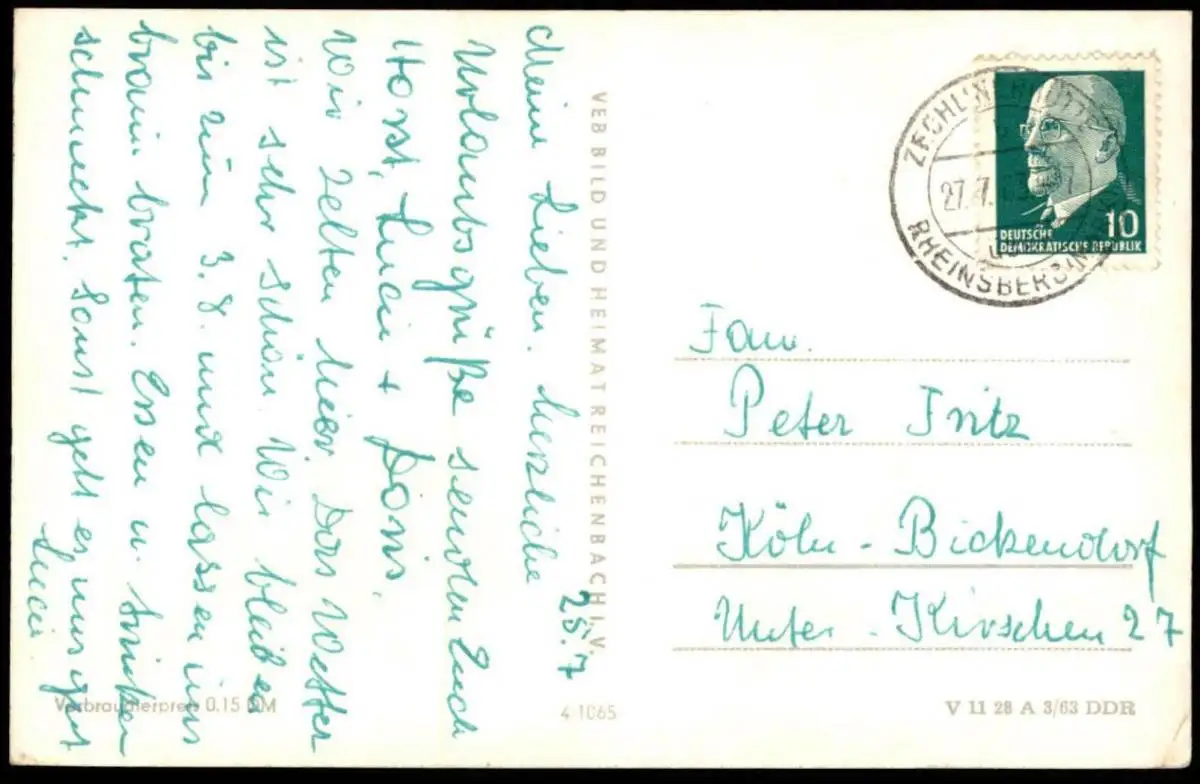 25.7
Meine Lieben. Herzliche
Urlaubsgrüße senden Euch
Horst, Luci + Doris.
Wir zelten hier. Das Wetter
ist sehr schön. Wir bleiben
bis zum 3.8. und lassen uns
braun braten. Essen u. trinken
schmeckt. Sonst geht es uns gut
Luci.
VEB BILD UND HEIMAT REICHENBACH I. V.
Verbraucherpreis 0.15 DM
4-1065
V 11 28 A 3/63 DDR
27.7.
RHEINSBERG
10
DEUTSCHE
DEMOKRATISCHE REPUBLIK
Fam.
Peter Fritz
Köln - Bickendorf
Unter - Kirschen 27